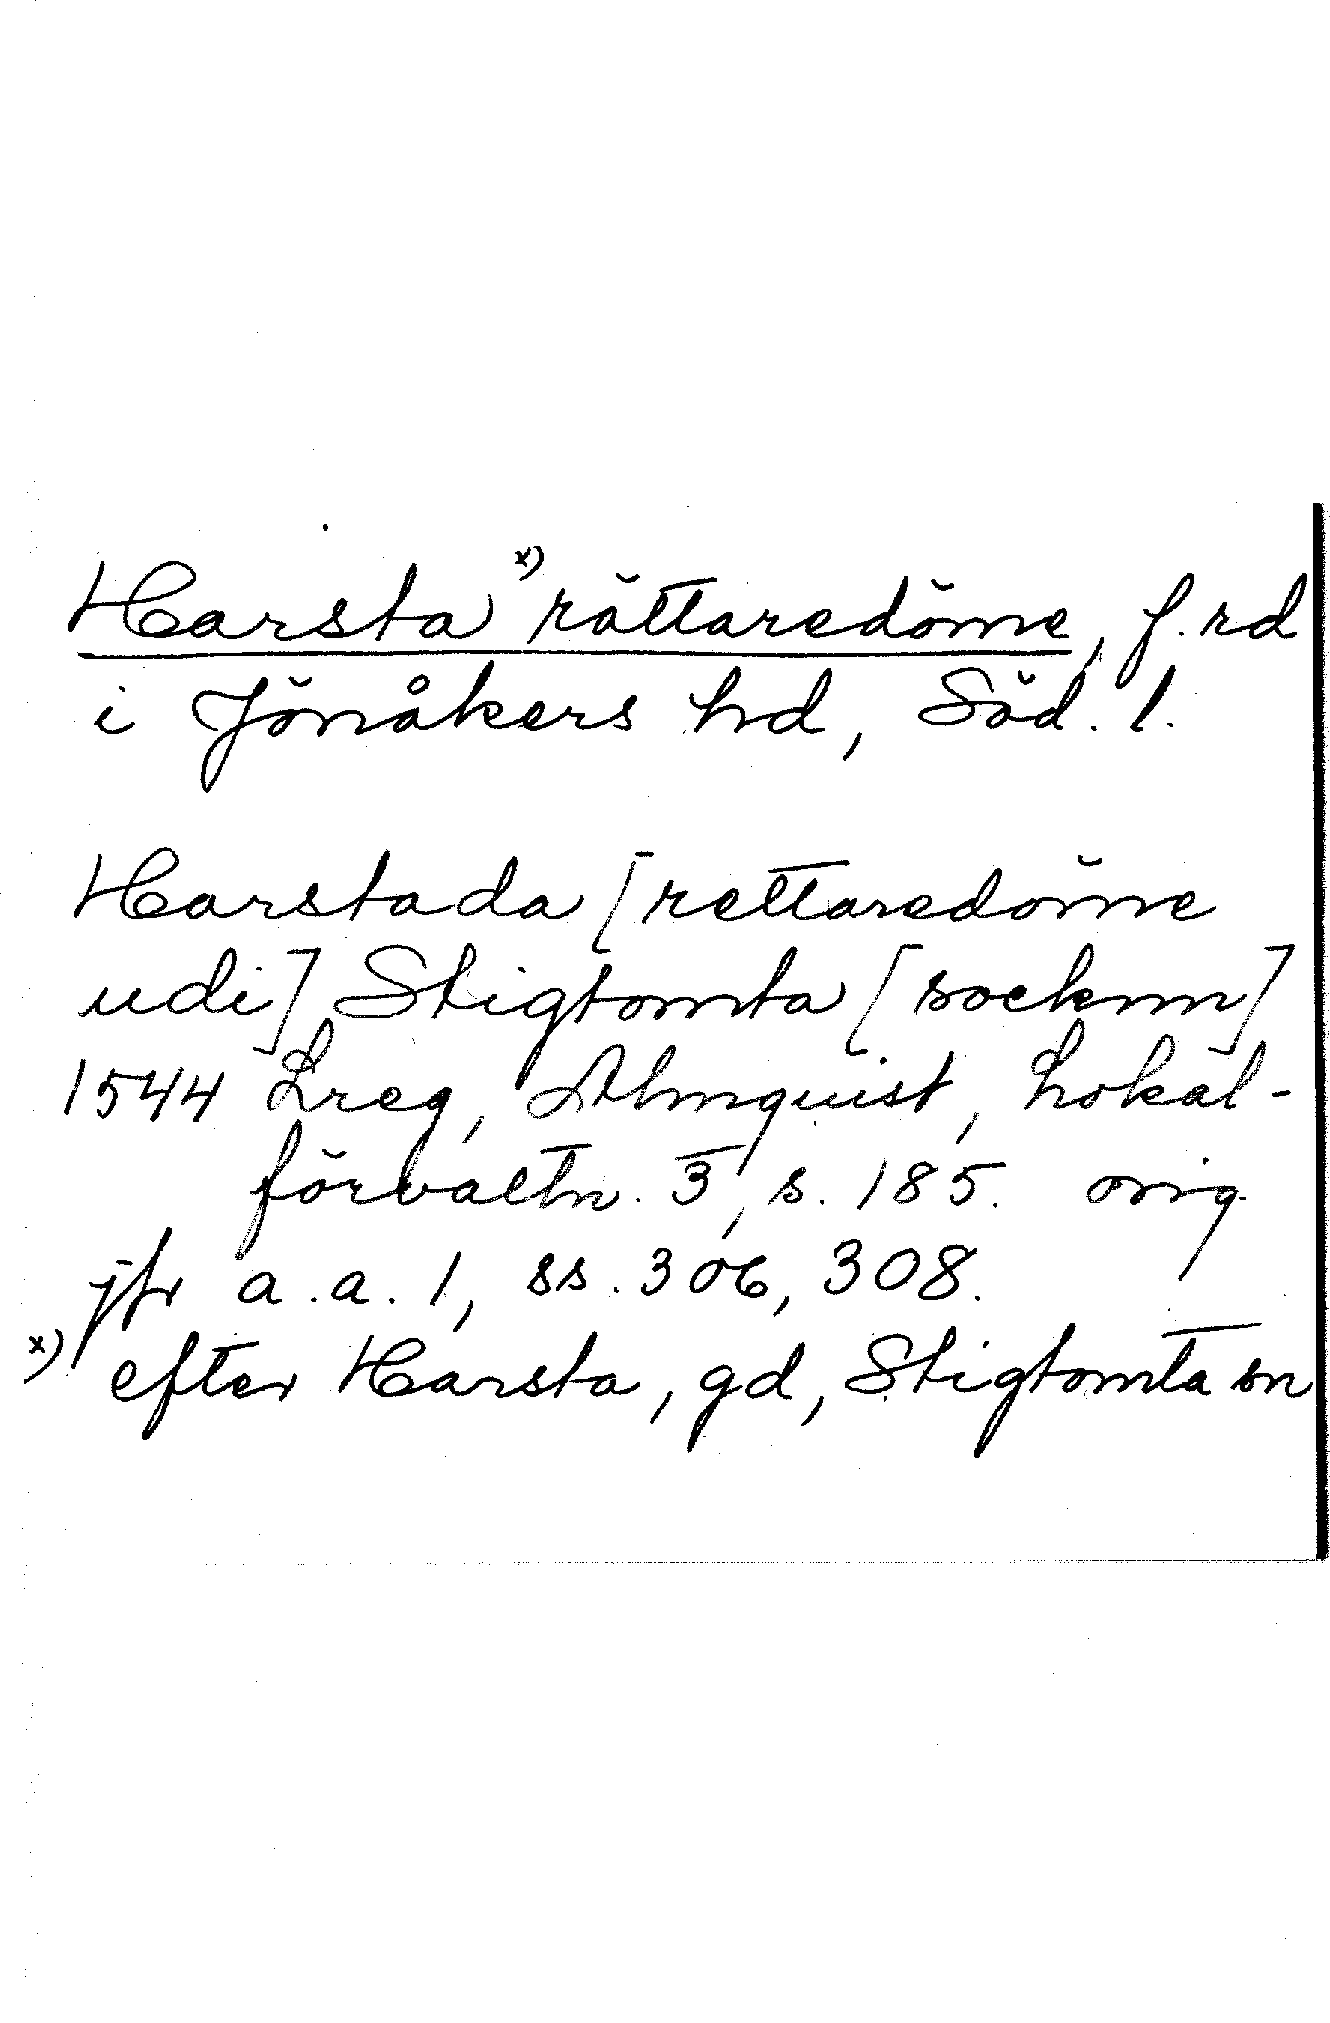 Harsta x) rättaredöme, f. rd
i Jönåkers hd, Söd. l.
Harstada [rettaredöme
udi] Stigtomta [socknn]
1544 Lreg, Almquist, Lokal-
förvaltn. 3, s. 185. orig.
jfr a.a. 1, ss. 306, 308.
x) efter Harsta, gd, Stigtomta sn